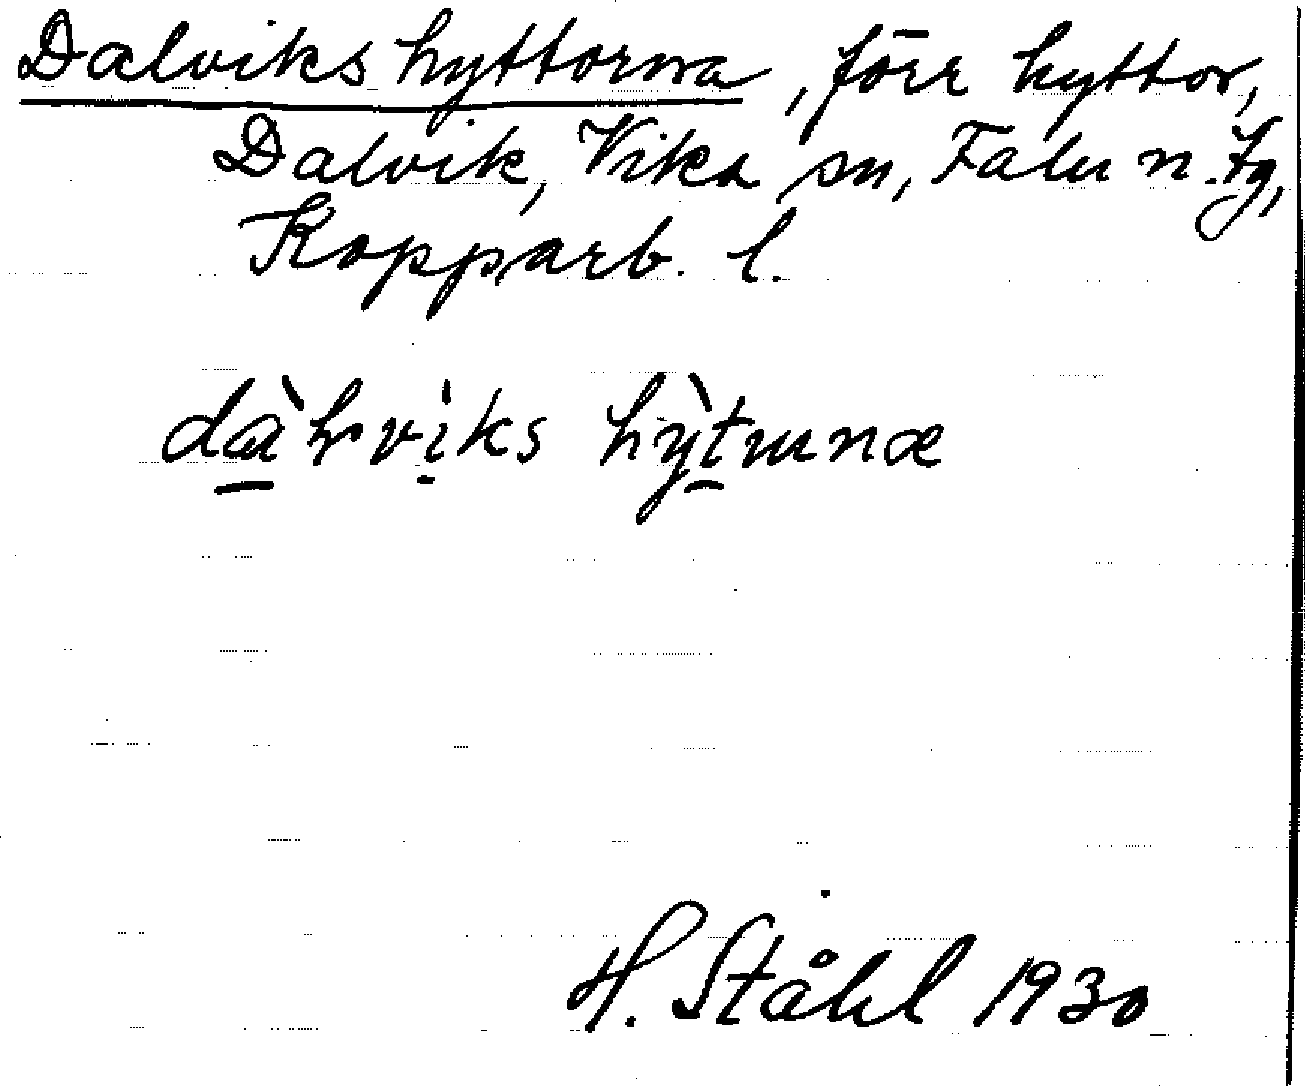 Dalviks hyttorna, förr hyttor,
Dalvik, Vika sn, Falu n. tg,
Kopparb. l.
dàɫviks hỳtɯnæ
H. Ståhl 1930